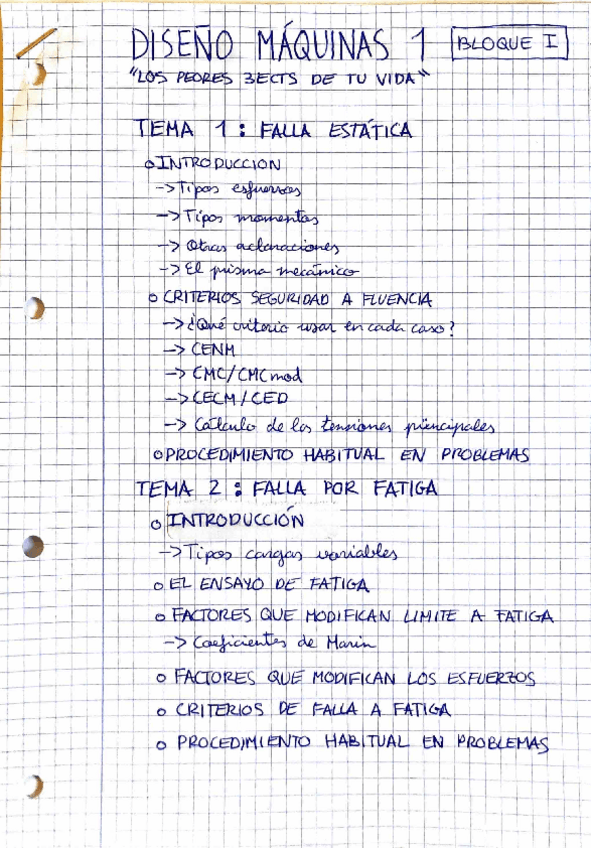 DISEÑO MÁQUINAS 1 BLOQUE I
"LOS PEORES 3ECTS DE TU VIDA"
TEMA 1: FALLA ESTÁTICA
o INTRODUCCION
-> Tipos esfuerzos
-> Tipos momentos
-> Otras aclaraciones
-> El prisma mecánico
o CRITERIOS SEGURIDAD A FLUENCIA
-> ¿Qué criterio usar en cada caso?
-> CENM
-> CMC/CMC mod
-> CECM/CED
-> Cálculo de las tensiones principales
o PROCEDIMIENTO HABITUAL EN PROBLEMAS
TEMA 2: FALLA POR FATIGA
o INTRODUCCIÓN
-> Tipos cargas variables
o EL ENSAYO DE FATIGA
o FACTORES QUE MODIFICAN LIMITE A FATIGA
-> Coeficientes de Marin
o FACTORES QUE MODIFICAN LOS ESFUERZOS
o CRITERIOS DE FALLA A FATIGA
o PROCEDIMIENTO HABITUAL EN PROBLEMAS